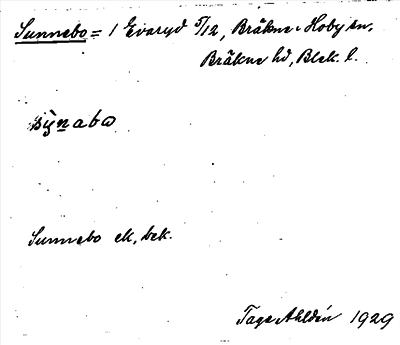 Sunnebo = 1 Evaryd 5/12, Bräkne-Hoby sn,
Bräkne hd, Blek. l.
Sunnebo ek, bek.
Tage Ahldén 1929